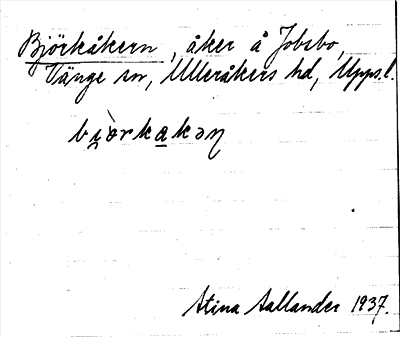 Björkåkern, åker å Jobsbo,
Vänge sn, Ulleråkers hd, Upps.l.
bi̯òrkakən
Stina Aallander 1937.